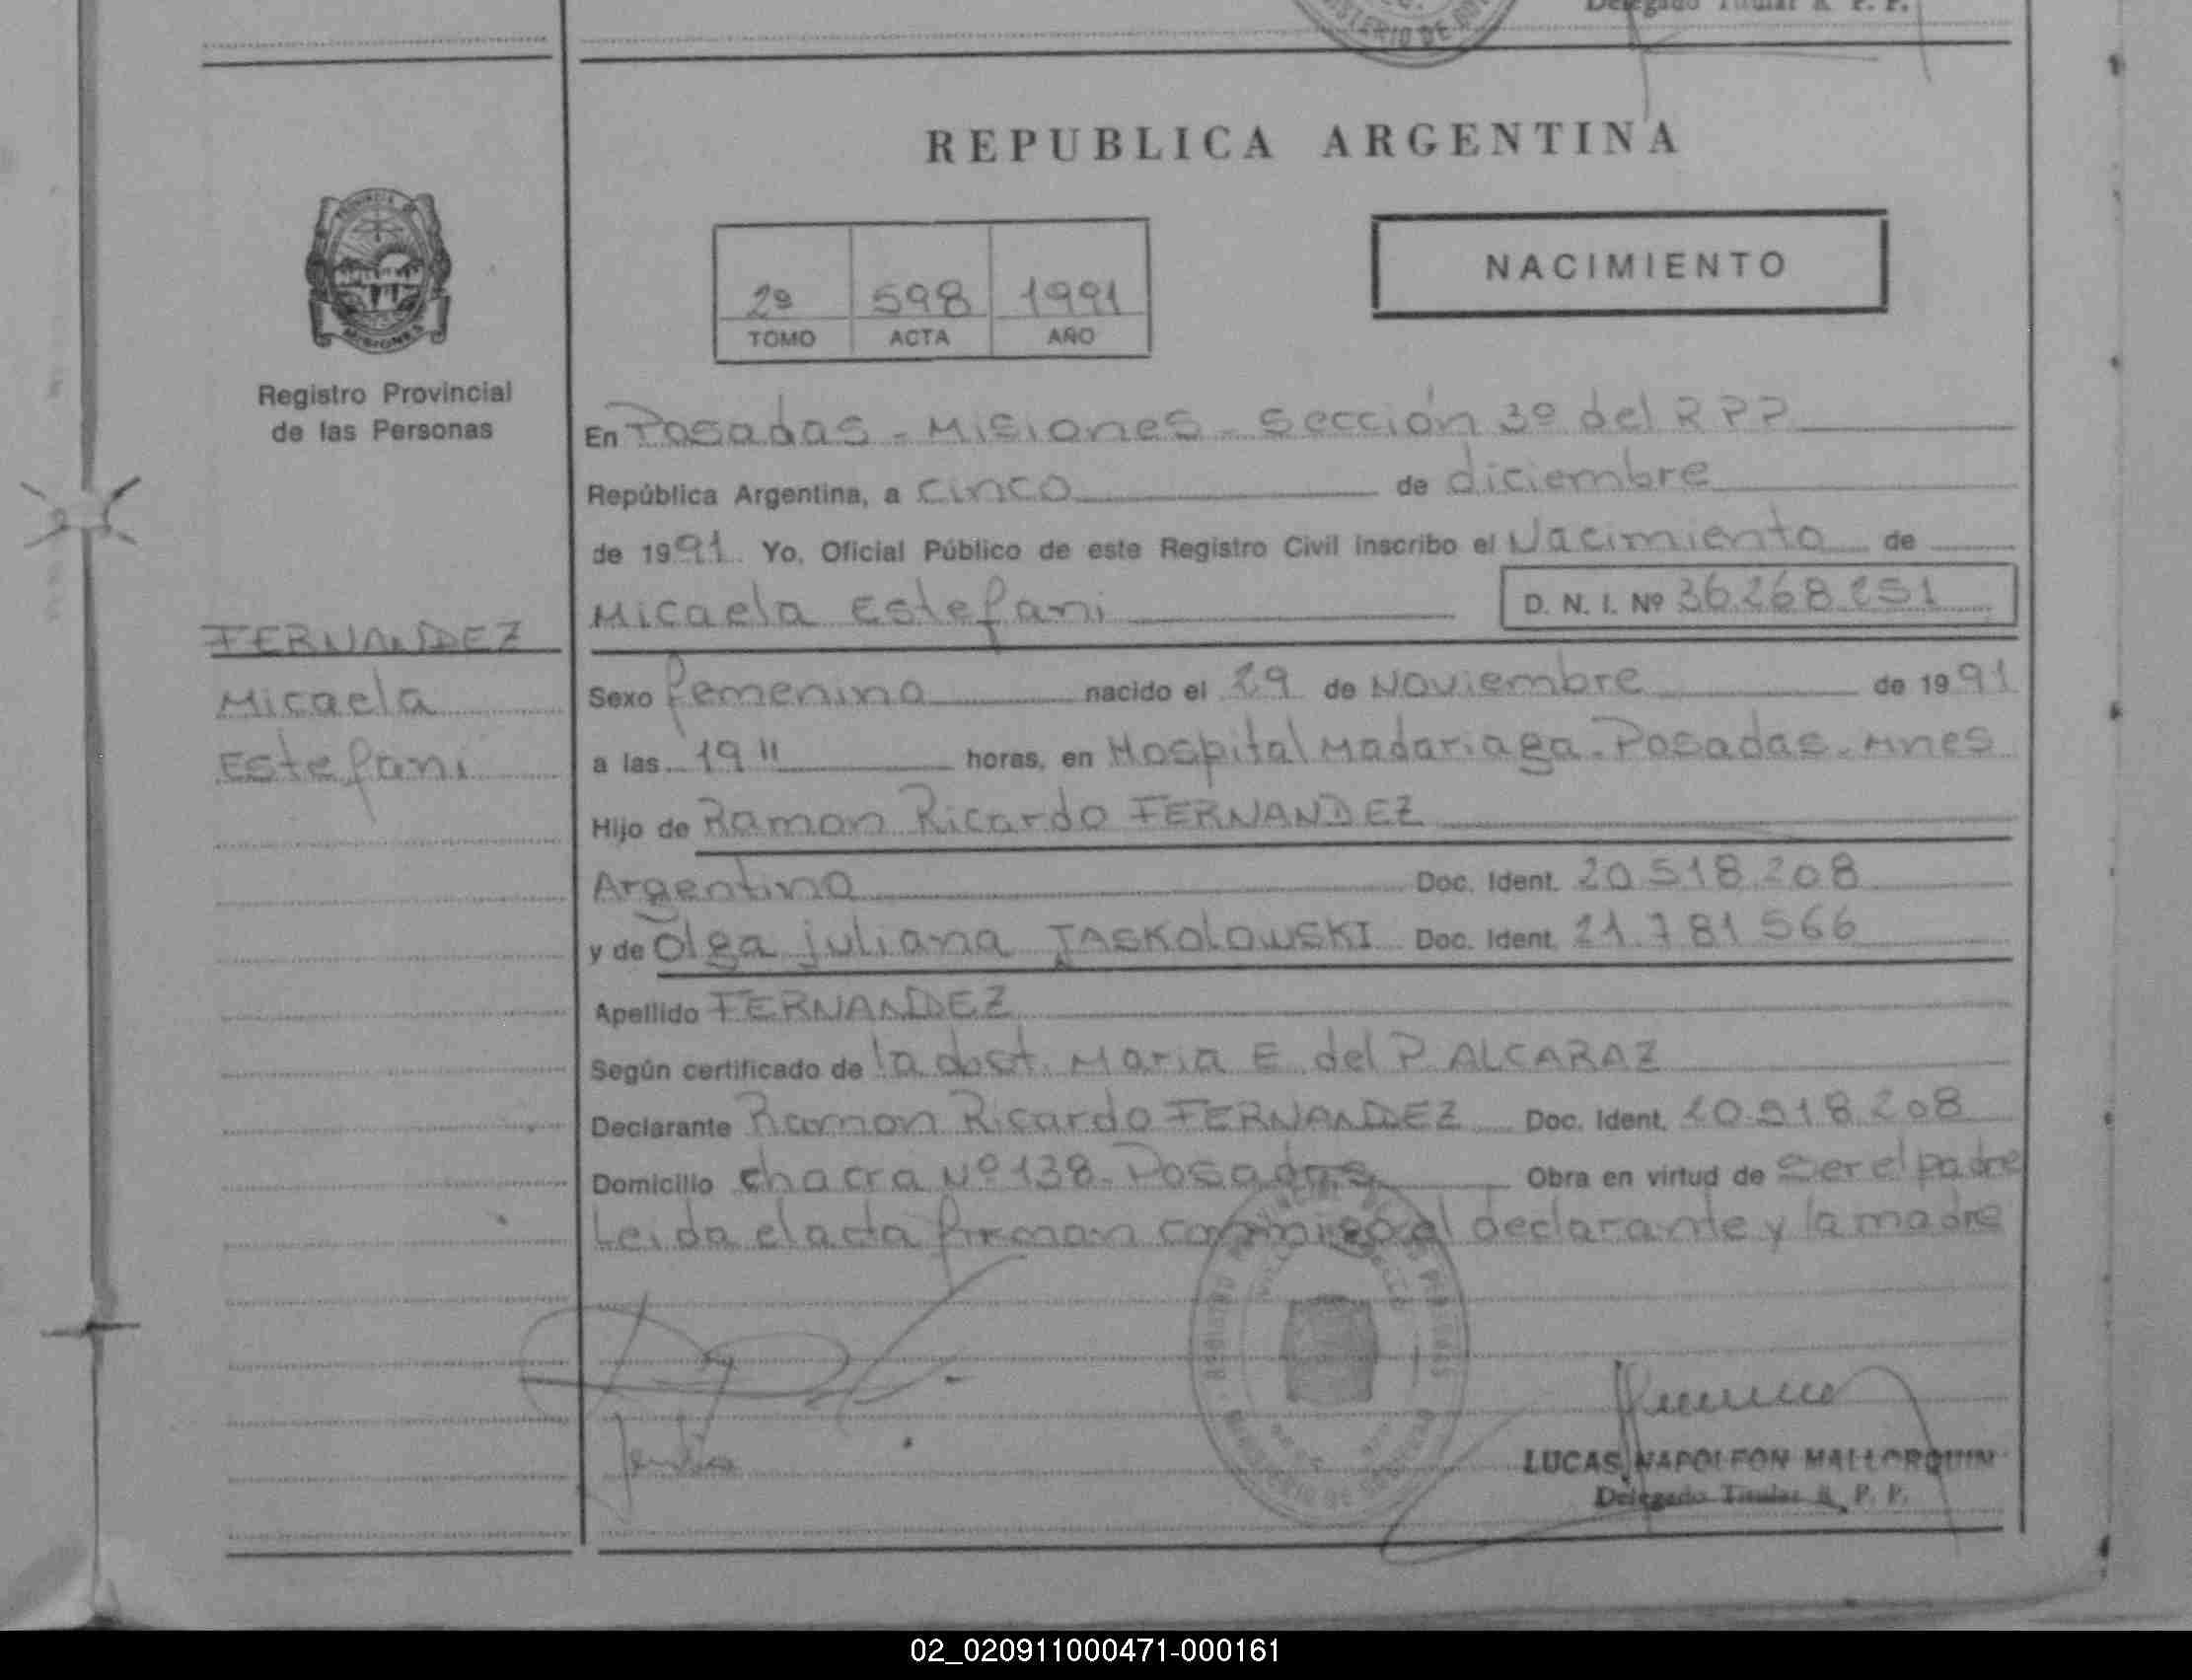 Delegado Titular R. P. P.
MINISTERIO DE GOB
REPUBLICA ARGENTINA
PROVINCIA DE
MISIONES
NACIMIENTO
2º 598 1991
TOMO ACTA AÑO
Registro Provincial
de las Personas
En Posadas - Misiones - Sección 3º del R P P
República Argentina, a cinco de diciembre
de 1991 Yo, Oficial Público de este Registro Civil inscribo el Nacimiento de
Micaela Estefani D. N. I. Nº 36.268.251
FERNANDEZ
Micaela
Estefani
Sexo femenino nacido el 29 de Noviembre de 1991
a las 19 11 horas, en Hospital Madariaga - Posadas - Mnes
Hijo de Ramon Ricardo FERNANDEZ
Argentino Doc. Ident. 20.518.208
y de Olga juliana JASKOLOWSKI Doc. Ident. 21.781.566
Apellido FERNANDEZ
Según certificado de la obst. Maria E. del P. ALCARAZ
Declarante Ramon Ricardo FERNANDEZ Doc. Ident. 20.518.208
Domicilio chacra Nº 138 - Posadas Obra en virtud de ser el padre
Leida el acta firman conmigo el declarante y la madre
LUCAS NAPOLEON MALLORQUIN
Delegado Titular R. P. P.
02_020911000471-000161